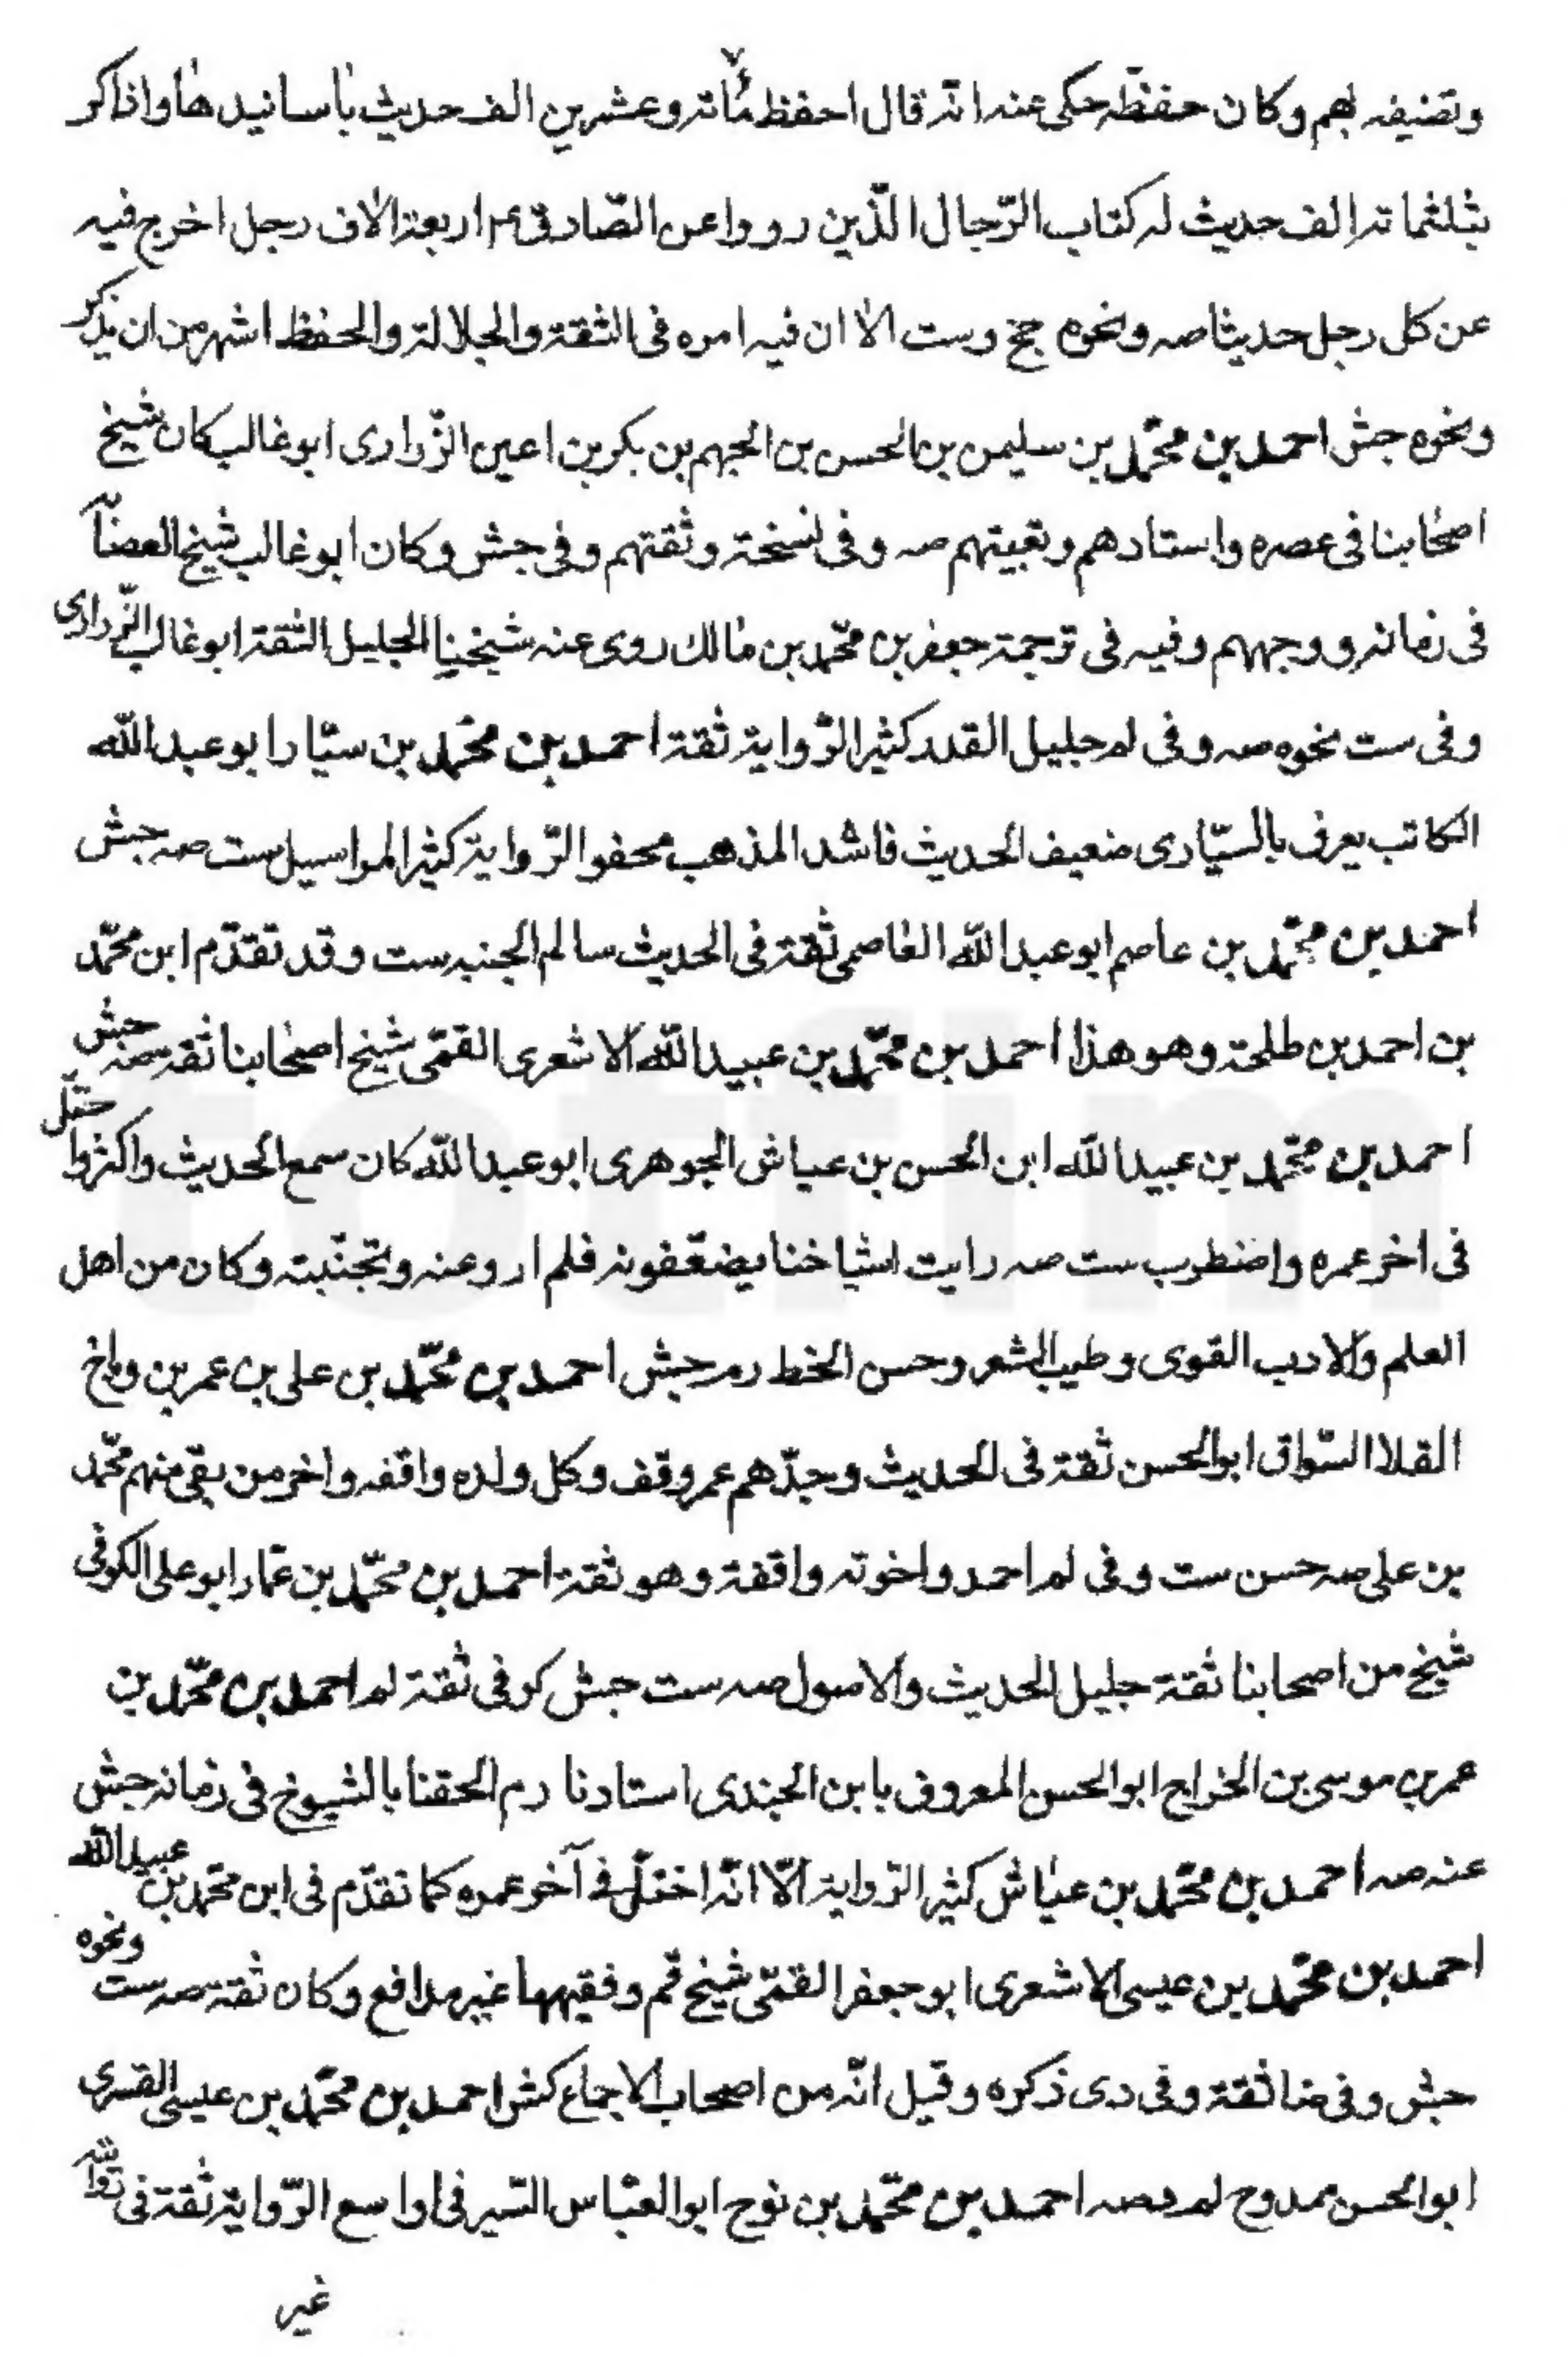 وتصنيفه لهم وكان حفظه حكى عنه انّه قال احفظ مائة وعشرين الف حديث باسانيدها واذاكر
بثلثمائة الف حديث له كتاب الرّجال الّذين رووا عن الصّادق ع م اربعة الاف رجل اخرج فيه
عن كل رجل حديثا صه ونحوه جخ وست الا ان فيه امره فى الثقة والجلالة والحفظ اشهر من ان يذكر
ونحوه جش احمد بن محمّد بن سليمن بن الحسن بن الجهم بن بكر بن اعين الزّرارى ابو غالب كان شيخ
اصحابنا فى عصره واستادهم وتقيتهم صه وفى نسخة وثقتهم وفى جش وكان ابو غالب شيخ العصابة
فى زمانه ووجههم وفيه فى ترجمة جعفر بن محمّد بن مالك روى عنه شيخنا الجليل الثقة ابو غالب الزّرارى
وفى ست نحوه صه وفى لم جليل القدر كثير الرّواية ثقة احمد بن محمّد بن سيّار ابو عبد اللّه
الكاتب يعرف بالسيّارى ضعيف الحديث فاسد المذهب محفو الرّواية كثير المراسيل ست صه جش
احمد بن محمّد بن عاصم ابو عبد اللّه العاصمى ثقة فى الحديث سالم الجنبه ست وقد تقدّم ابن محمّد
بن احمد بن طلحة وهو هذا احمد بن محمّد بن عبيد اللّه الاشعرى القمّى شيخ اصحابنا ثقة صه جش
احمد بن محمّد بن عبيد اللّه ابن الحسن بن عياش الجوهرى ابو عبد اللّه كان سمع الحديث واكثر واختل
فى اخر عمره واضطرب ست صه رايت اشياخنا يضعّفونه فلم ارو عنه وتجنّبته وكان من اهل
العلم والادب القوى وطيب الشعر وحسن الخط ره جش احمد بن محمّد بن على بن عمر بن رباح
القلا السّواق ابو الحسن ثقة فى الحديث وجدّهم عمر وقف وكل ولده واقفه واخر من بقى منهم محمّد
بن على صه حسن ست وفى لم احمد واخوته واقفة وهو ثقة احمد بن محمّد بن عمّار ابو على الكوفى
شيخ من اصحابنا ثقة جليل الحديث والاصول صه ست جش كوفى ثقة لم احمد بن محمّد بن
عمر بن موسى بن الخراج ابو الحسن المعروف بابن الجندى استادنا ره الحقنا بالشيوخ فى زمانه جش
عنه صه احمد بن محمّد بن عيّاش كثير الرّواية الّا انّه اختلّ فى آخر عمره كما تقدّم فى ابن محمّد بن عبيد اللّه
احمد بن محمّد بن عيسى الاشعرى ابو جعفر القمّى شيخ قم وفقيهها غير مدافع وكان ثقة صه ست ونحوه
جش وفى ضا ثقة وفى دى ذكره وقيل انّه من اصحاب الاجماع كش احمد بن محمّد بن عيسى القسرى
ابو الحسن ممدوح لم صه احمد بن محمّد بن نوح ابو العبّاس السّيرفى واسع الرّواية ثقة فى روايته
غير